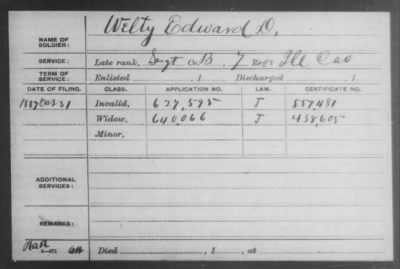 NAME OF SOLDIER: Welty Edward D.
SERVICE: Late rank, Sergt Co. B, 7 Reg't Ill Cav
TERM OF SERVICE: Enlisted , 1 Discharged , 1
DATE OF FILING. CLASS. APPLICATION NO. LAW. CERTIFICATE NO.
1887 Oct 31 Invalid, 627,595 J 557,481
Widow, 640,066 J 438,605
Minor,
ADDITIONAL SERVICES:
REMARKS:
Died , 1 , at